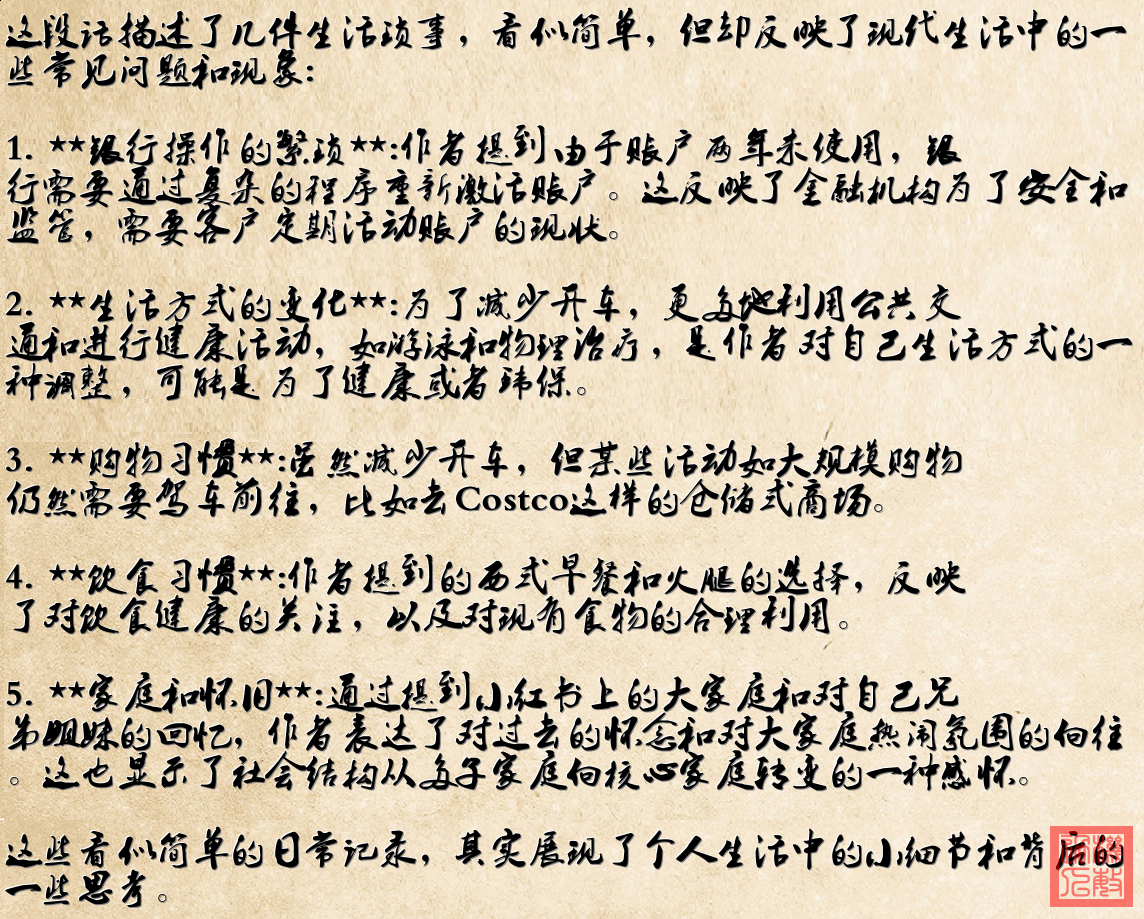 这段话描述了几件生活琐事，看似简单，但却反映了现代生活中的一
些常见问题和现象：
1. **银行操作的繁琐**:作者提到由于账户两年未使用，银
行需要通过复杂的程序重新激活账户。这反映了金融机构为了安全和
监管，需要客户定期活动账户的现状。
2. **生活方式的变化**:为了减少开车，更多地利用公共交
通和进行健康活动，如游泳和物理治疗，是作者对自己生活方式的一
种调整，可能是为了健康或者环保。
3. **购物习惯**:虽然减少开车，但某些活动如大规模购物
仍然需要驾车前往，比如去Costco这样的仓储式商场。
4. **饮食习惯**:作者提到的西式早餐和火腿的选择，反映
了对饮食健康的关注，以及对现有食物的合理利用。
5. **家庭和怀旧**:通过提到小红书上的大家庭和对自己兄
弟姐妹的回忆，作者表达了对过去的怀念和对大家庭热闹氛围的向往
。这也显示了社会结构从多子家庭向核心家庭转变的一种感怀。
这些看似简单的日常记录，其实展现了个人生活中的小细节和背后的
一些思考。